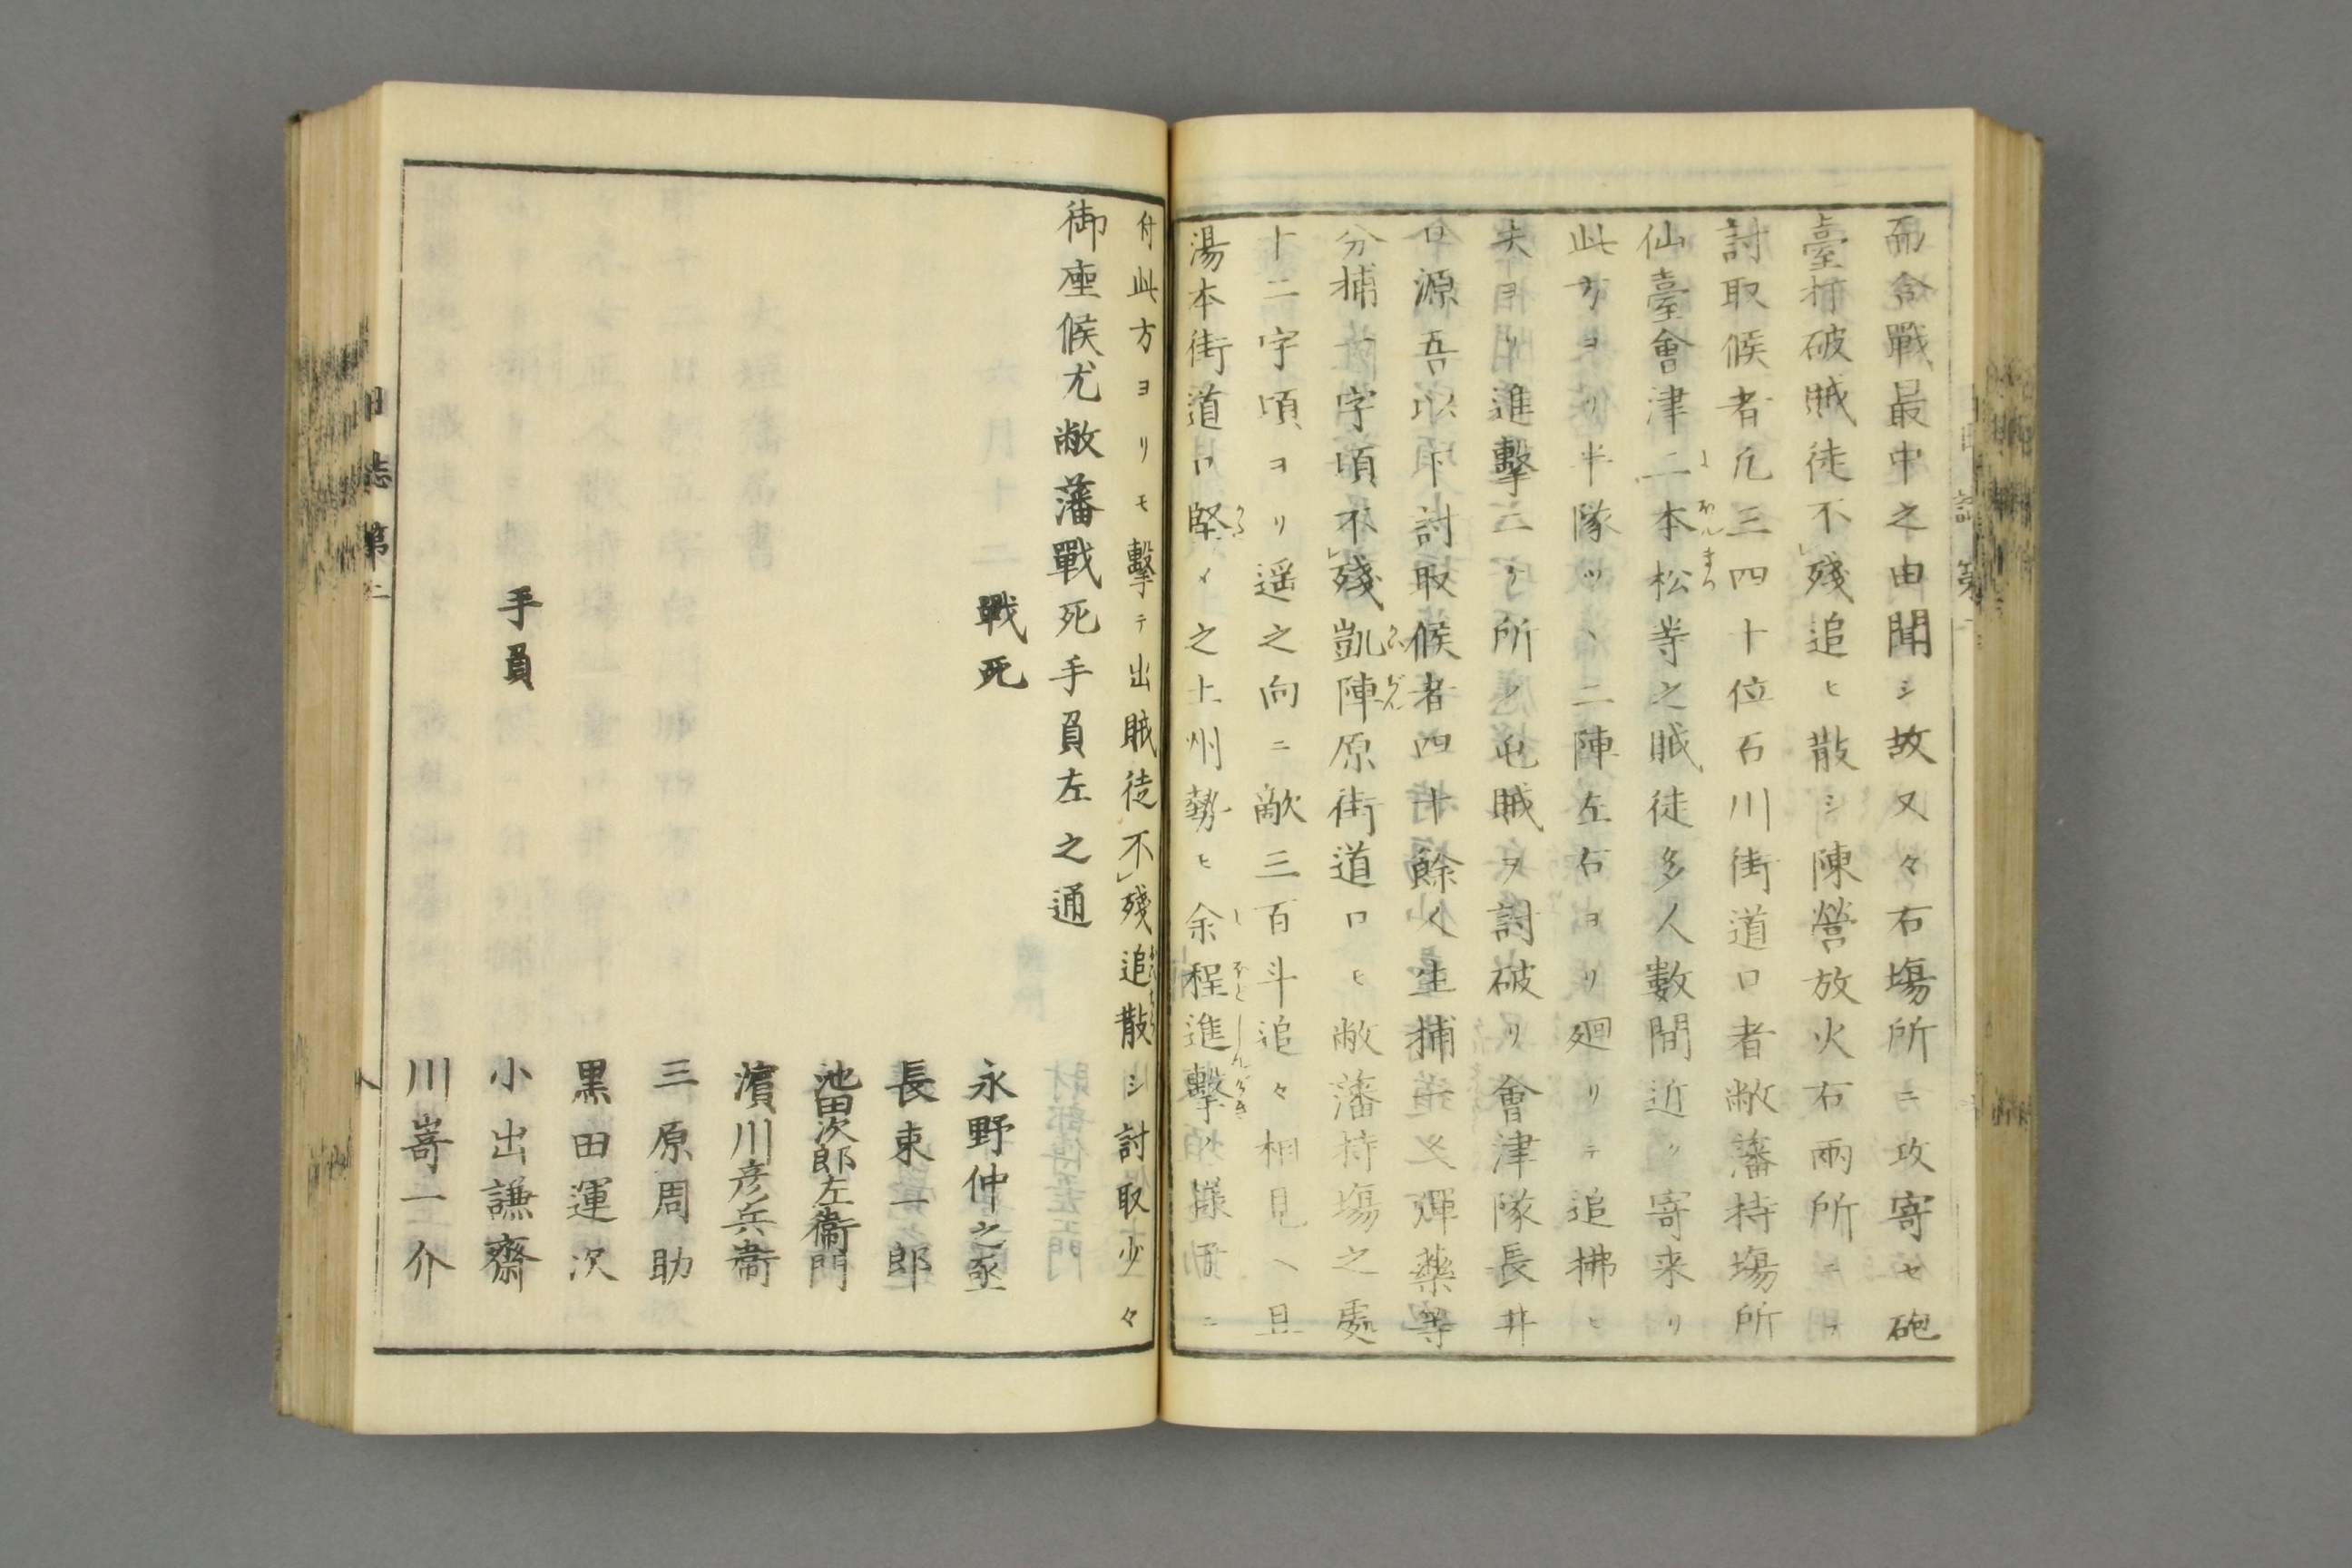 而合戰最中之由聞シ故又々右塲所ニ攻寄セ砲
臺打破賊徒不殘追ヒ散シ陳營放火右兩所ニテ
討取候者凡三四十位石川街道口者敝藩持塲所
仙臺會津二本松等之賊徒多人數間近ク寄来リ
此方ヨリ半隊ツヽ二陣左右ヨリ廻リテ追拂ヒ
夫ヨリ進擊六ケ所ノ屯賊ヲ討破リ會津隊長井
口源吾以下討取候者四十餘人生捕一人彈藥等
分捕一字頃不殘凱陣原街道口ヒ敝藩持塲之處
十二字頃ヨリ遥之向ニ敵三百斗追々相見ヘ且
湯本街道口堅メ之上州勢ヒ余程進擊ノ樣子ニ
付此方ヨリモ擊テ出賊徒不殘追散シ討取少々
御座候尤敝藩戰死手負左之通
戰死
永野仲之丞
長束一郎
池田次郎左衞門
濵川彦兵衞
三原周助
黒田運次
手負
小出謙齋
川嵜一介
日誌第二
八